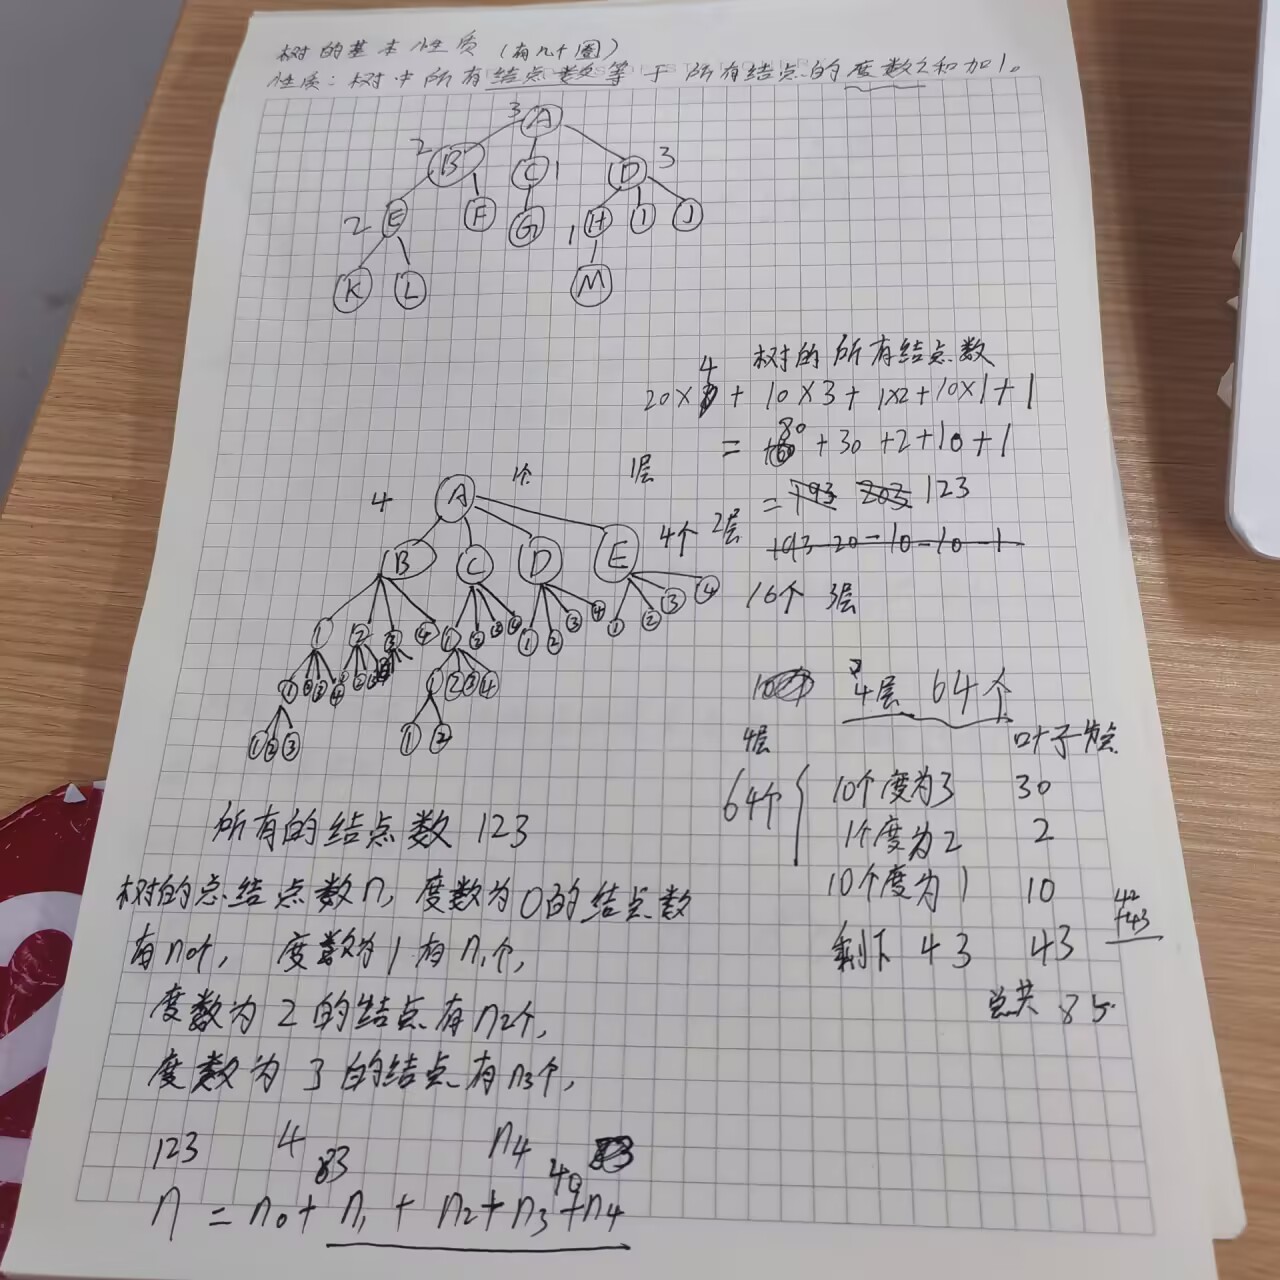 树的基本性质（有几个圈）
性质：树中所有结点数等于所有结点的度数之和加1。
3 A
2 B C 1 D 3
2 E F G 1 H I J
K L M
树的所有结点数
20×4 + 10×3 + 1×2 + 10×1 + 1
= 80 + 30 + 2 + 10 + 1
= 123
4 A 1个 1层
B C D E 4个 2层
1 2 3 4 1 2 3 4 1 2 3 4 1 2 3 4 16个 3层
4层 64个
1 2 3 4 1 2 3 4
1 2 3 1 2
4层 叶子结点
64个 10个度为3 30
1个度为2 2
10个度为1 10
剩下 43 43
42
+43
总共 85
所有的结点数 123
树的总结点数n，度数为0的结点数
有n0个，度数为1有n1个，
度数为2的结点有n2个，
度数为3的结点有n3个，
123 4 83 n4 40
n = n0 + n1 + n2 + n3 + n4